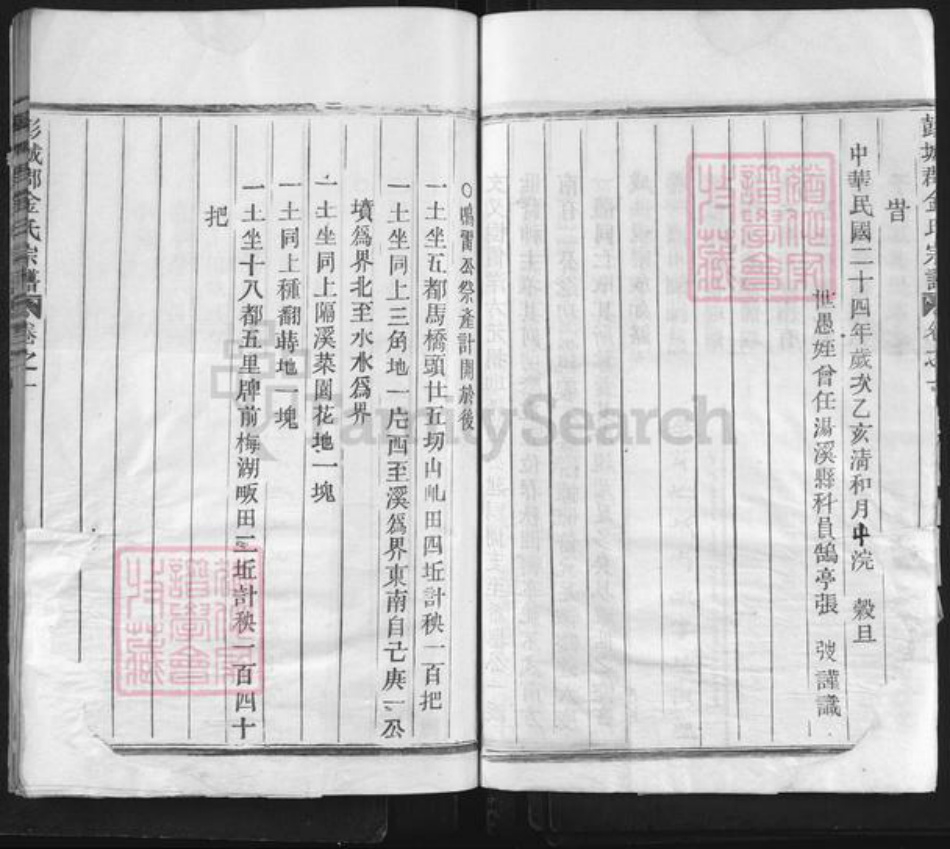 彭城郡金氏宗譜
卷之十
旹
中華民國二十四年歲次乙亥清和月中浣 榖旦
世愚姪曾任湯溪縣科員鶴亭張 弢謹識
○鳴霄公祭產計開於後
一土坐五都馬橋頭廿五切山屺田四坵計秧一百把
一土坐同上三角地一片西至溪爲界東南自己庚一公
墳爲界北至水水爲界
一土坐同上隔溪菜園花地一塊
一土同上種翻蒔地一塊
一土坐十八都五里牌前梅湖畈田二坵計秧一百四十
把
彭城郡金氏宗譜
卷之十
FamilySearch